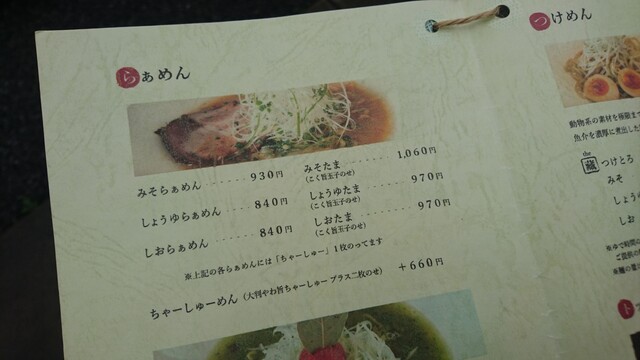 らぁめん
みそらぁめん ……… 930円
しょうゆらぁめん …… 840円
しおらぁめん ……… 840円
みそたま ……… 1,060円
(こく旨玉子のせ)
しょうゆたま ……… 970円
(こく旨玉子のせ)
しおたま ……… 970円
(こく旨玉子のせ)
※上記の各らぁめんには「ちゃーしゅー」1枚のってます
ちゃーしゅーめん(大判やわ旨ちゃーしゅープラス二枚のせ) +660円
つけめん
動物系の素材を極限まで
魚介を濃厚に煮出した
the
蔵 つけとろ
みそ
しょう
しお
※ゆで時間の
ご提供の
ト